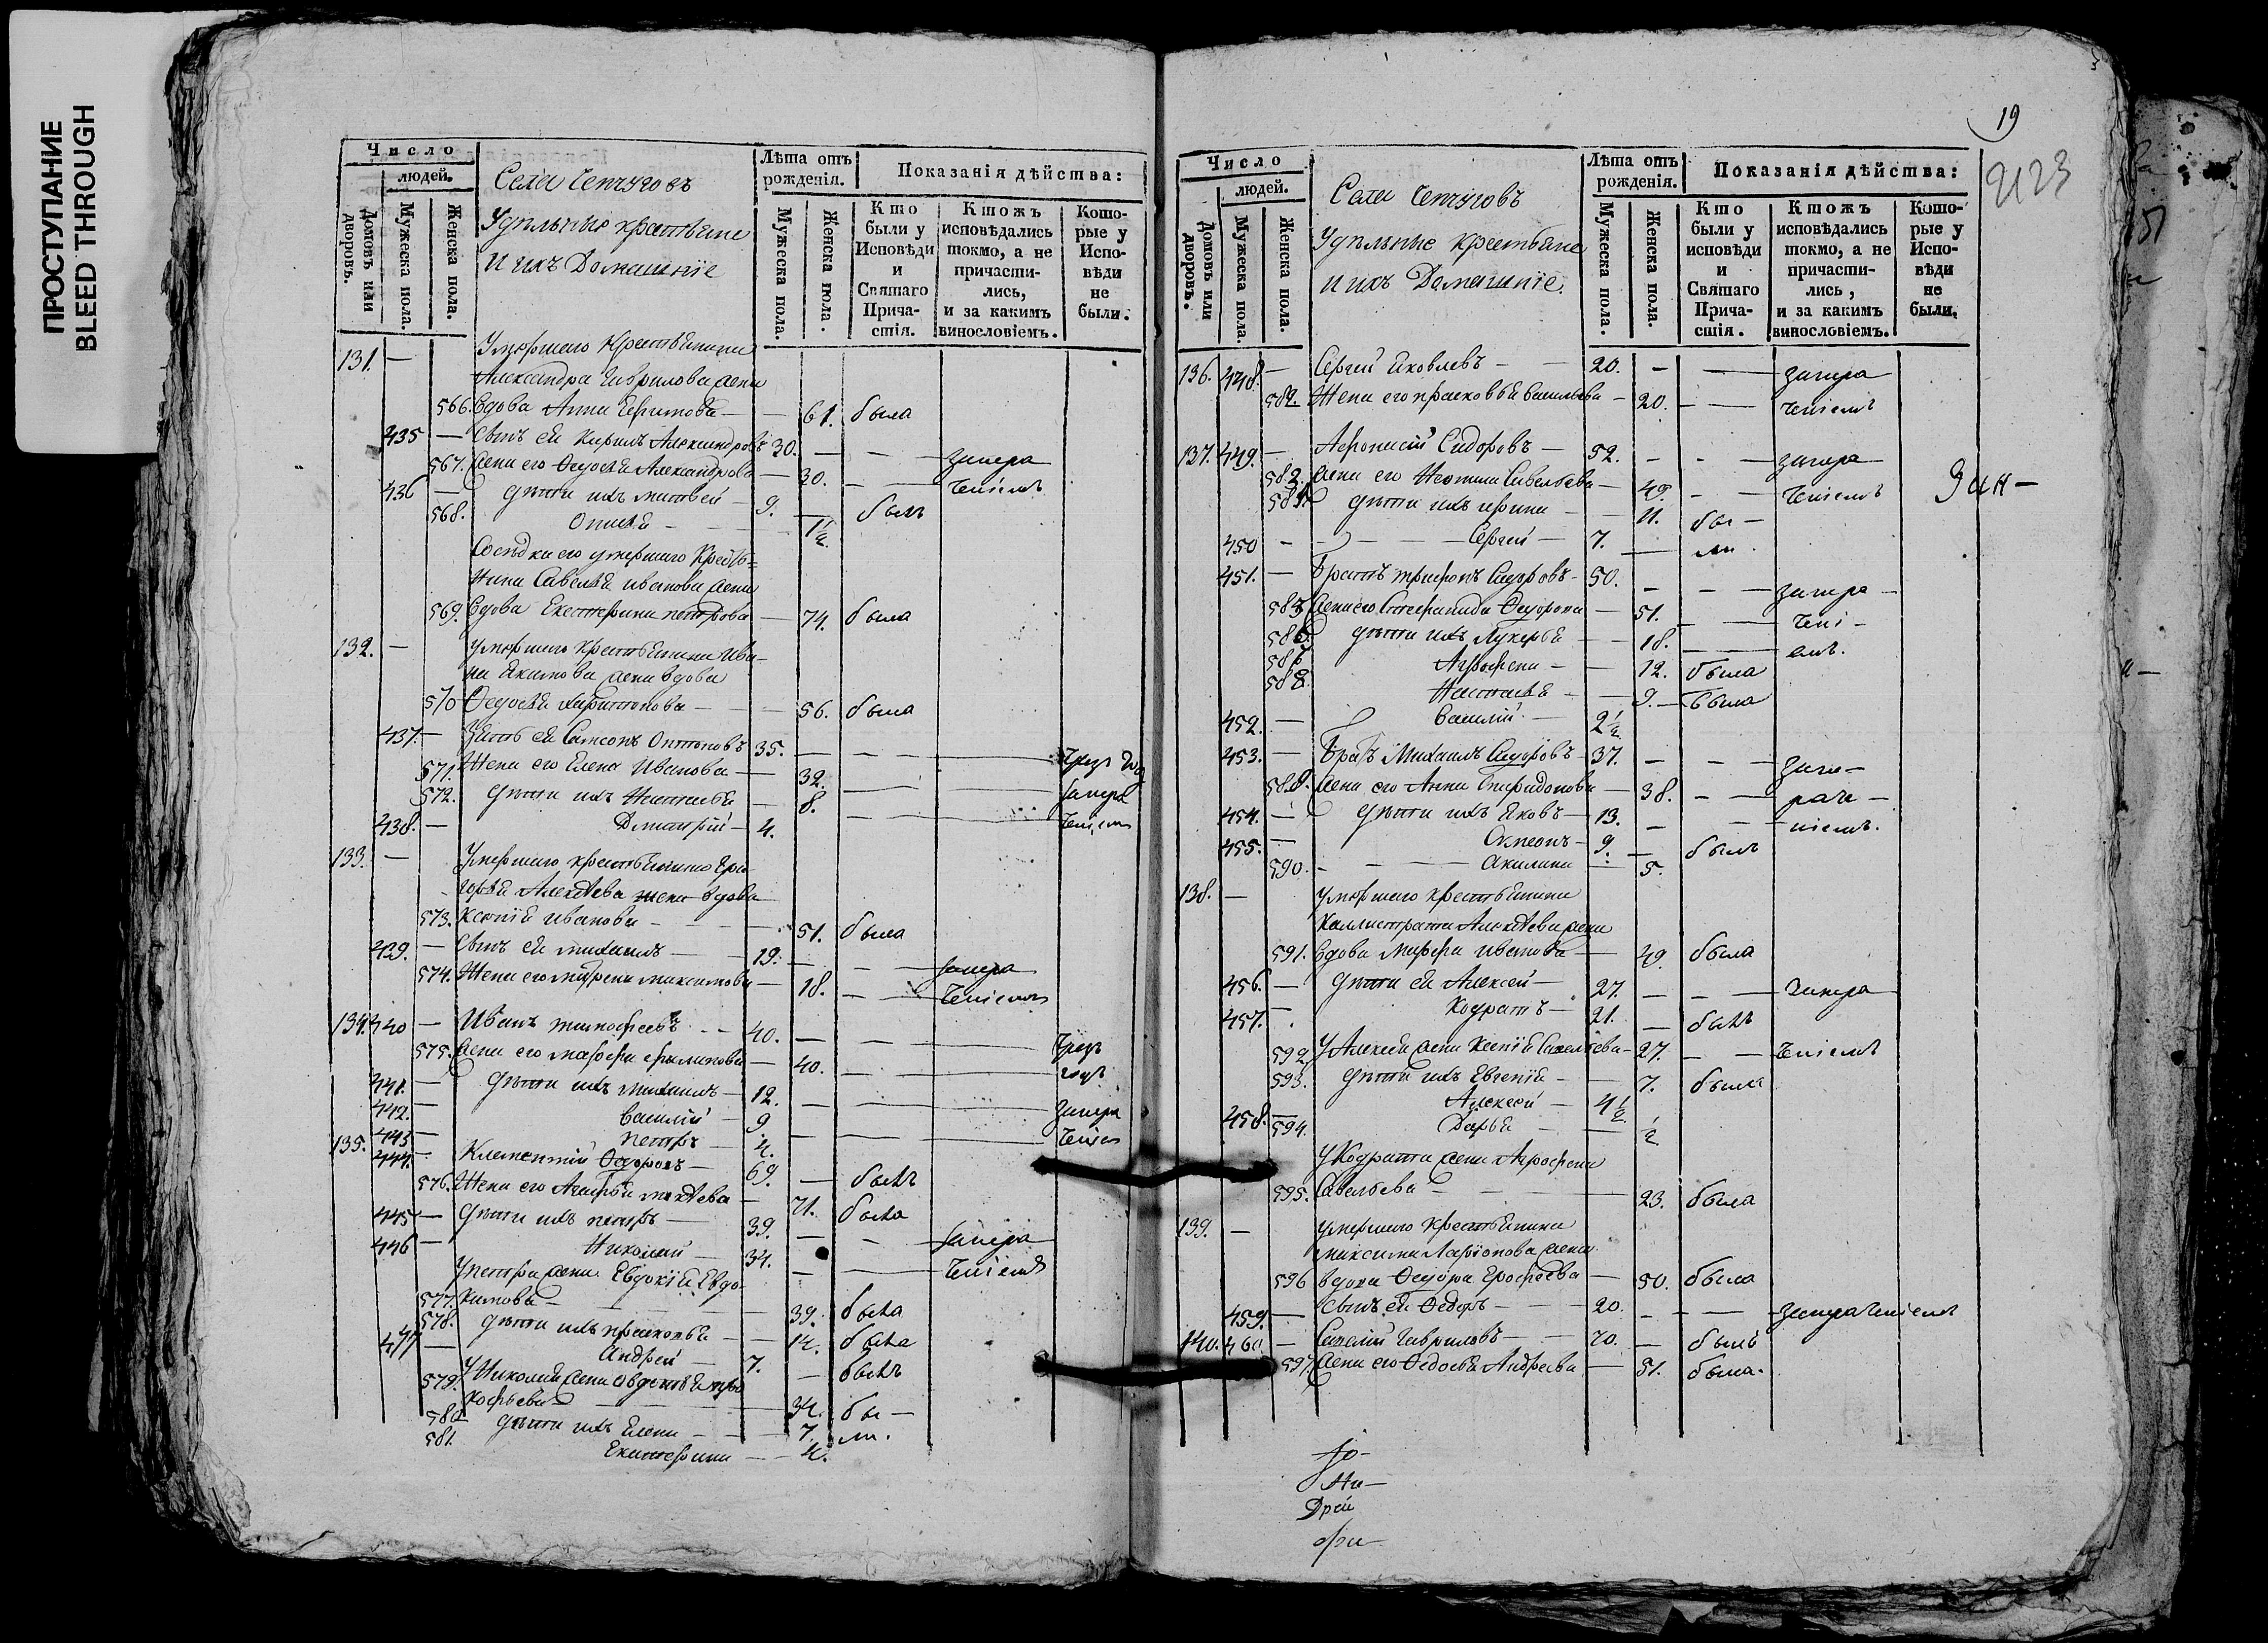 ПРОСТУПАНИЕ
BLEED THROUGH
Число
людей.
Домовъ или дворовъ.
Мужеска пола.
Женска пола.
Села Чепчуговъ
Удѣльные крестьяне
И ихъ Домашнїе
Лѣта отъ рожденія.
Мужеска пола.
Женска пола.
Показанія дѣйства:
Кто были у Исповѣди и Святаго Причастія.
Ктожъ исповѣдались токмо, а не причастились, и за какимъ винословіемъ.
Которые у Исповѣди не были.
131. — Умершаго крестьянина
Александра Гаврилова жена
566. Вдова Анна — 61. была
435 — Сынъ ея Кирилъ Александровъ 30. — — занера
567. Жена его Ѳедосья Александрова — 30. — — ченіемъ
436 — Дѣти ихъ Матвей — 9. — былъ
568. — 1½
Сосѣдки его умершаго Кресть=
янина Савелья Иванова жена
569. Вдова Екатерина Петрова — 74. была
132. — Умершаго крестьянина Ива-
на Екимова жена вдова
570 Ѳедосья Харитонова — 56. была
437. — Зять ея Самсонъ 35. — —
571. Жена его Елена Иванова — 32. — — занера
572. Дѣти ихъ Настасья — 8. — — ченіемъ
438. — Дмитрій — 4.
133. — Умершаго крестьянина Гри
горья Алексѣева жена вдова
573. Ксенія Иванова — 51. была
439. — Сынъ ея Михаилъ — 19. — — занера
574. Жена его Матрена Максимова — 18. — — ченіемъ
134. 440 — Иванъ Тимофеевъ — 40. — —
575. Жена его Марфа Филипова — 40. — — годъ
441. — Дѣти ихъ Михаилъ — 12. — —
442. — Василій — 9 — — занера
443 — Петръ — 4. — — ченіем
135. 444. — Клементий Ѳедоровъ — 69. — былъ
576. Жена его Агафья — 71. была
445 — Дѣти ихъ Петръ — 39. — — занера
446 — Николай — 34. — — ченіемъ
У Петра жена Евдокія Евдо-
577. кимова — 39. была
578. Дѣти ихъ Прасковья — 14. была
447 — Андрей — 7. — былъ
579. У Николая жена Авдотья Про
кофьева — 34. бы —
580 Дѣти ихъ Елена — 7. ли.
581. Екатерина — 4.
19
2123
Число
людей.
Домовъ или дворовъ.
Мужеска пола.
Женска пола.
Села Чепчуговъ
Удѣльные крестьяне
И ихъ Домашніе.
Лѣта отъ рожденія.
Мужеска пола.
Женска пола.
Показанія дѣйства:
Кто были у исповѣди и Святаго Причастія.
Ктожъ исповѣдались токмо, а не причастились, и за какимъ винословіемъ.
Которые у Исповѣди не были.
136. 448. — Сергей Яковлевъ — 20. — — занера
582. Жена его Прасковья Васильева — 20. — — ченіемъ
137. 449. — Сидоровъ — 52. — — занера
583. Жена его Савельева — 49. — — ченіемъ
584. Дѣти ихъ Ирина — 11. бы —
450 — Сергей — 7. — ли
451. — Братъ Трифонъ Сидоровъ — 50. — — занера —
585 Жена его Степанида Ѳедорова — 51. — — чені —
586. Дѣти ихъ Лукерья — 18. — — емъ.
587 Аграфена — 12. была
588. Настасья — 9. — была
452. — Василій — 2½
453. — Братъ Михаилъ Сидоровъ — 37. — — зане —
589. Жена его Анна Спиридонова — 38. — — раче —
454. — Дѣти ихъ Яковъ — 13. — — ніемъ.
455. — Симеонъ — 9. — былъ
590. — Акилина — 5.
138. — Умершаго крестьянина
Каллистрата Алексѣева жена
591. Вдова Марфа Иванова — 49. была
456. — Дѣти ея Алексей — 27. — — занера
457. Кодратъ — 21. — былъ
592 У Алексея жена Ксенія Савельева — 27. — — ченіемъ
593. Дѣти ихъ Евгенія — 7. была
458. — Алексей — 4½
594. Дарья — ½
У Кодрата жена Аграфена
595. Савельева — 23. была
139. — Умершаго крестьянина
Максима Ларіонова жена
596 вдова Ѳедора Ерофеева — 50. была
459. — Сынъ ея Ѳедоръ — 20. — — занераченіемъ
140. 460 — Савелій Гавриловъ — 70. — былъ
597. Жена его Ѳедосья Андреева — 51. была.
Ан —
Дрей